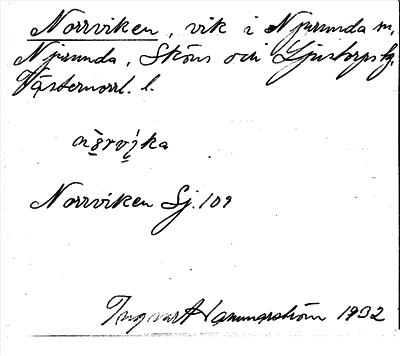 Norrviken, vik i Njurunda sn,
Njurunda, Sköns och Ljustorps tg.
Västernorrl. l.
nò̤rvì̤ka
Norrviken Sj. 109
Ingvar Hammarström 1932